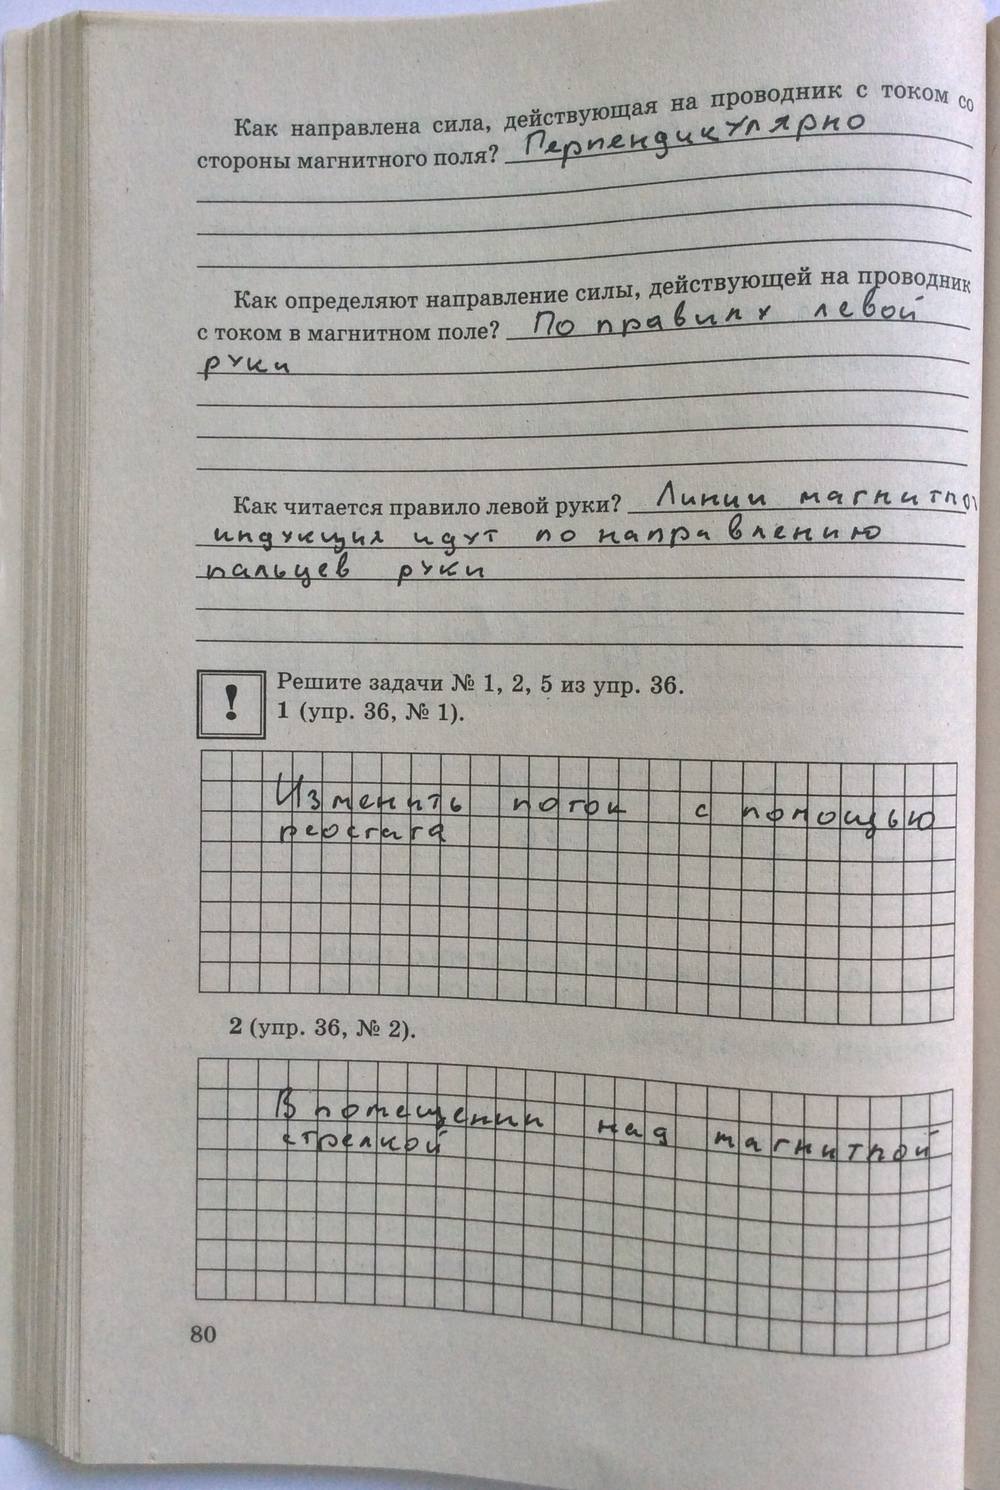 Как направлена сила, действующая на проводник с током со
стороны магнитного поля? Перпендикулярно
Как определяют направление силы, действующей на проводник
с током в магнитном поле? По правилу левой
руки
Как читается правило левой руки? Линии магнитной
индукция идут по направлению
пальцев руки
! Решите задачи № 1, 2, 5 из упр. 36.
1 (упр. 36, № 1).
Изменить поток с помощью
реостата
2 (упр. 36, № 2).
В помещении над магнитной
стрелкой
80